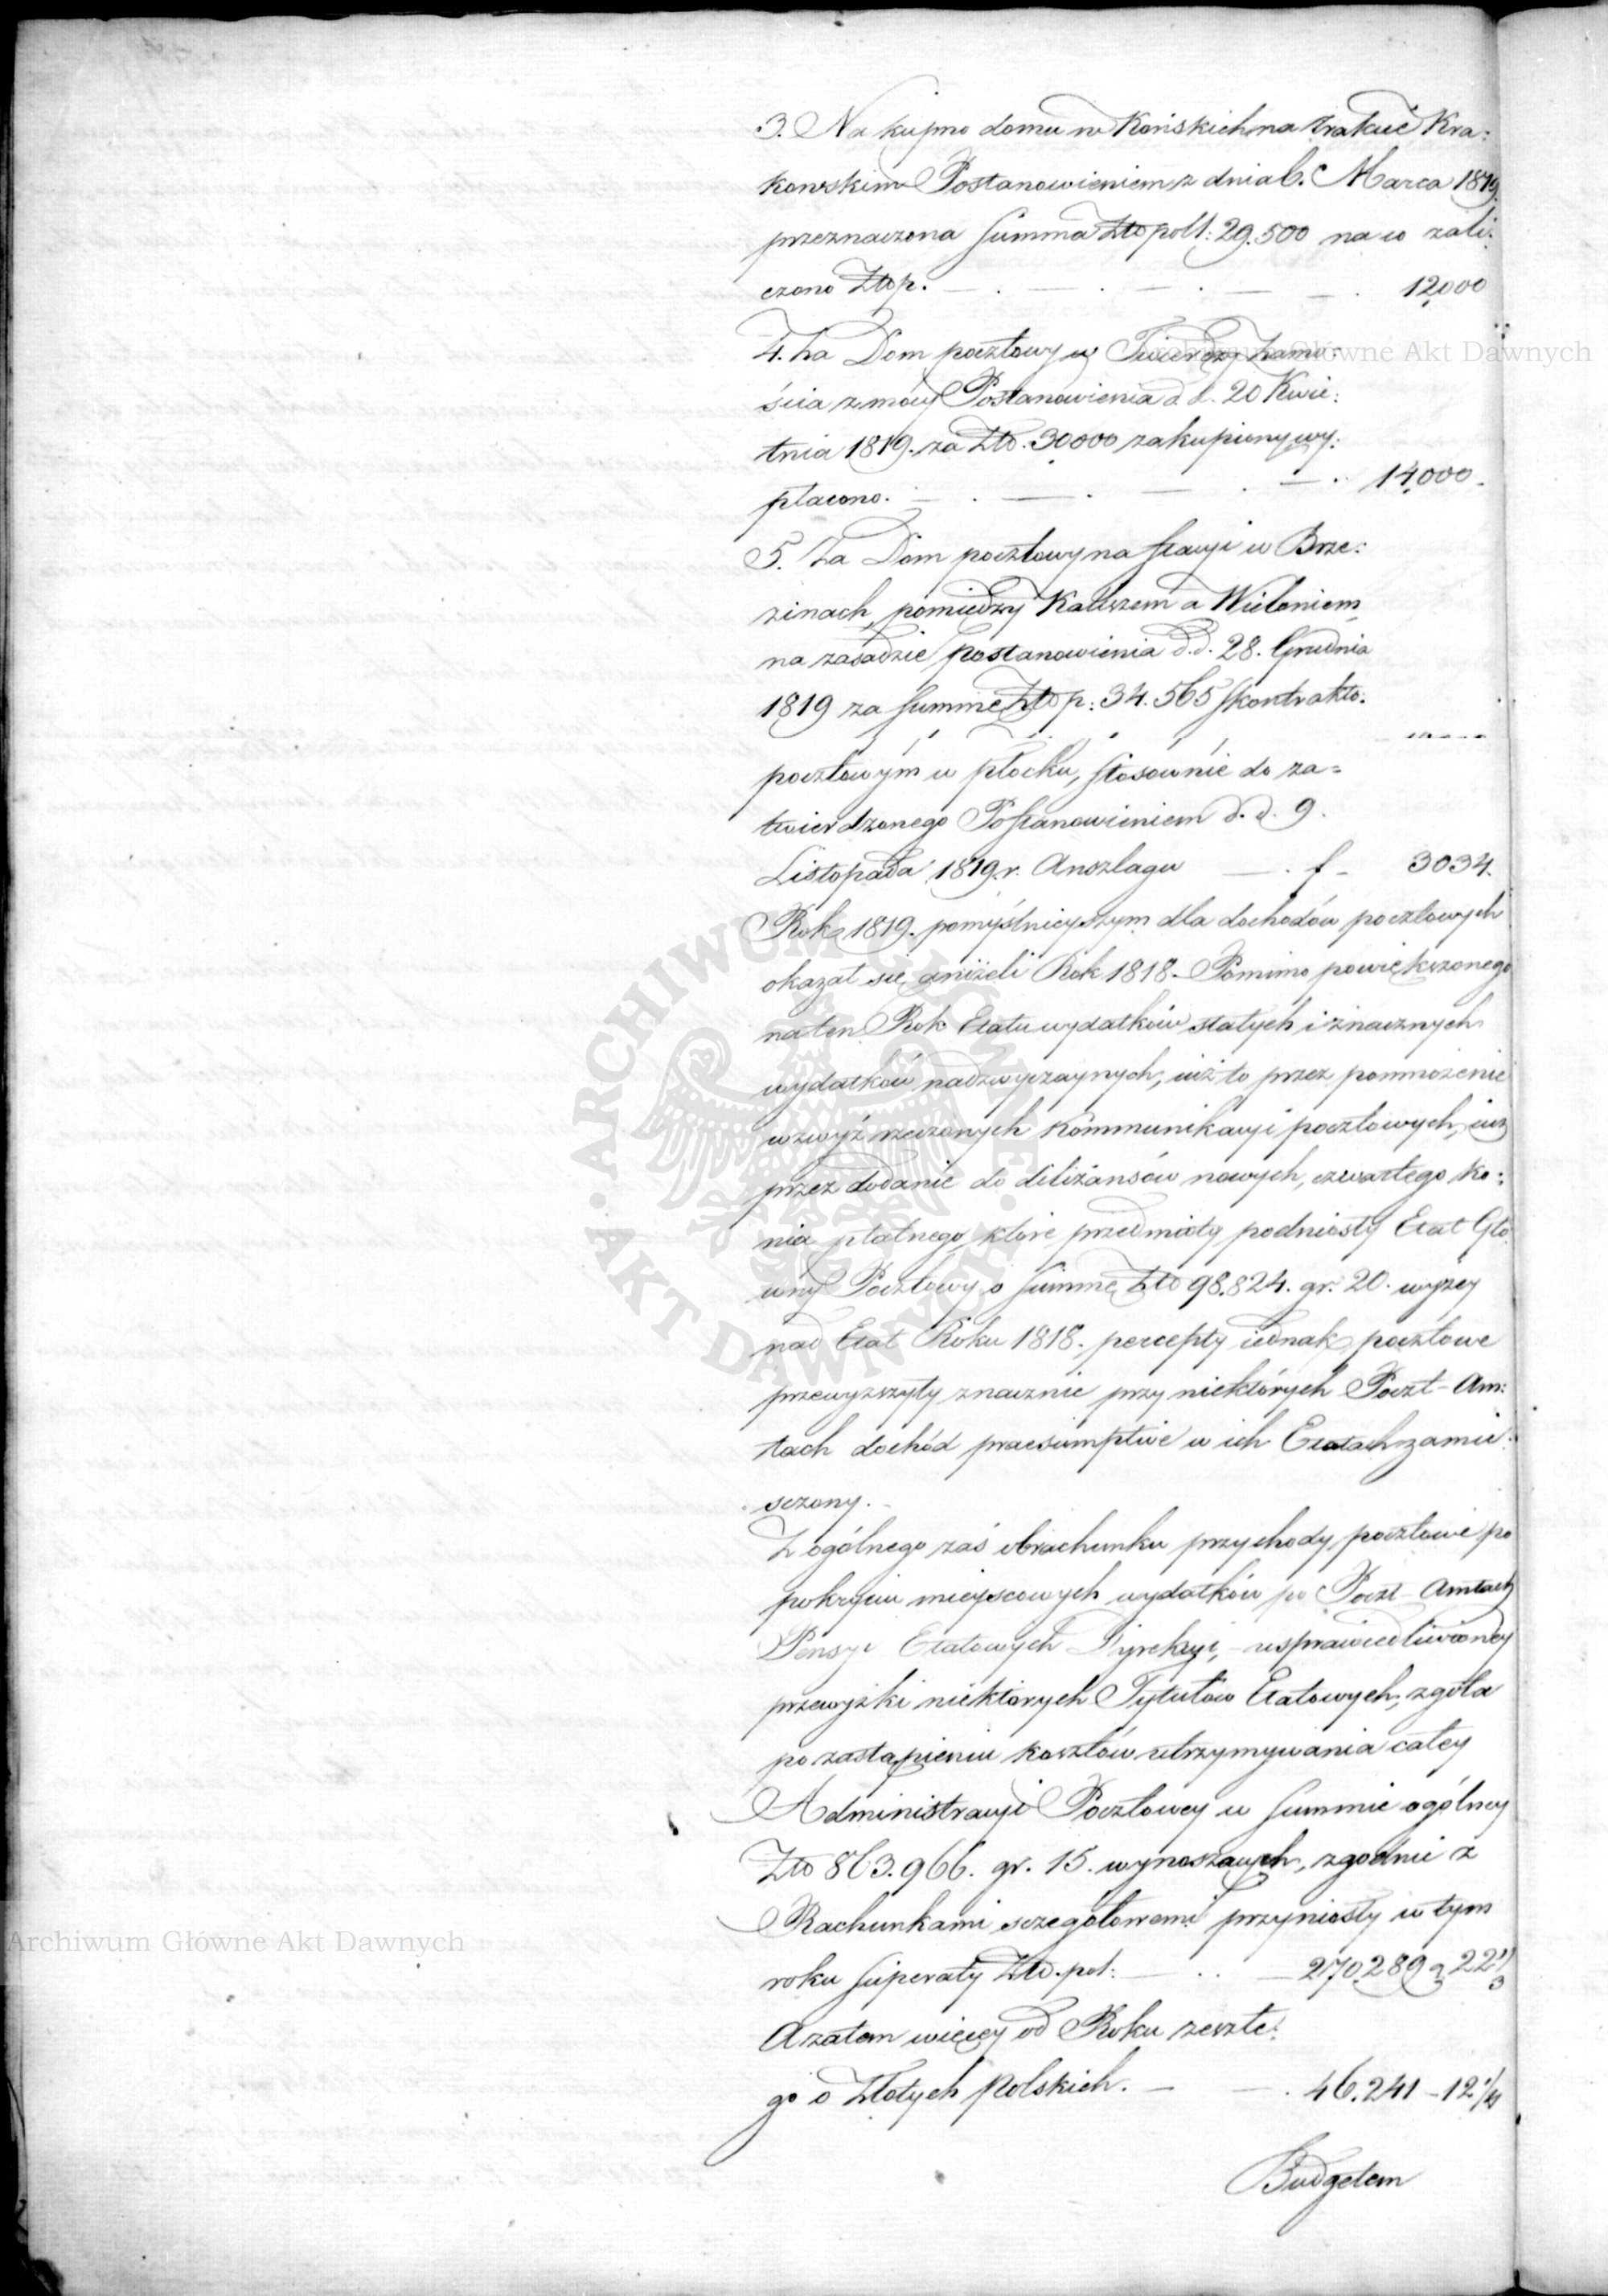 3. Na kupno domu w Końskich na trakcie Kra:
kowskim Postanowieniem z dnia 6. Marca 1819
przeznaczona Summa Złtopolt: 29.500 na co zali:
czono Złtop. — . — . — . — . 12,000
4. Za Dom pocztowy w Twierdzy Zamo:
ścia z mocy Postanowienia d. d. 20 Kwie:
tnia 1819. za Złto. 30000 zakupiony wy:
płacono. — . — . — . — . 14,000.
5. Za Dom pocztowy na stacyi w Brze:
zinach, pomiędzy Kaliszem a Wieloniem
na zasadzie postanowienia d.d. 28. Grudnia
1819 za summę Złto p: 34.565 skontrakto:
pocztowym w Płocku, stosównie do za=
twierdzonego Postanowieniem d. d. 9.
Listopada 1819. r. Anszlagu — . f – 3034.
Rok 1819. pomyślnieyszym dla dochodów pocztowych
okazał się, aniżeli Rok 1818. – Pomimo powiększonego
na ten Rok Etatu wydatków stałych i znacznych
wydatków nadzwyczaynych, iuż to przez pomnożenie
wzwyż rzeczonych Kommunikacyi pocztowych, iuż
przez dodanie do diliżansów nowych, czwartego ko:
nia płatnego, które przedmioty podniosły Etat Głó
wny Pocztowy o Summę Złto 98.824. gr. 20. wyżey
nad Etat Roku 1818. percepty iednak pocztowe
przewyższyły znacznie przy niektórych Poczt-Am:
tach dochód praesumptive w ich Etatach zamie:
szczony. –
Z ogólnego zaś obrachunku przychody pocztowe po
pokryciu mieyscowych wydatków po Poczt-Amtach
Pensyi Etatowych Dyrekcyi, – usprawiedliwioney
przewyżki niektórych Tytułów Etatowych, zgoła
po zastąpieniu kosztów utrzymywania całey
Administracyi Pocztowey w Summie ogólney
Złto 863.966. gr. 15. wynoszących, zgodnie z
Rachunkami szczegółowemi przyniosły w tym
roku superaty Złto. pol: — . . — 270,289 g 22 1/3
A zatem więcey od Roku zeszłe:
go o Złotych Polskich. — — . 46.241 – 12 1/4
Budgetem
Archiwum Główne Akt Dawnych
Archiwum Główne Akt Dawnych
ARCHIWUM GŁÓWNE · AKT DAWNYCH ·